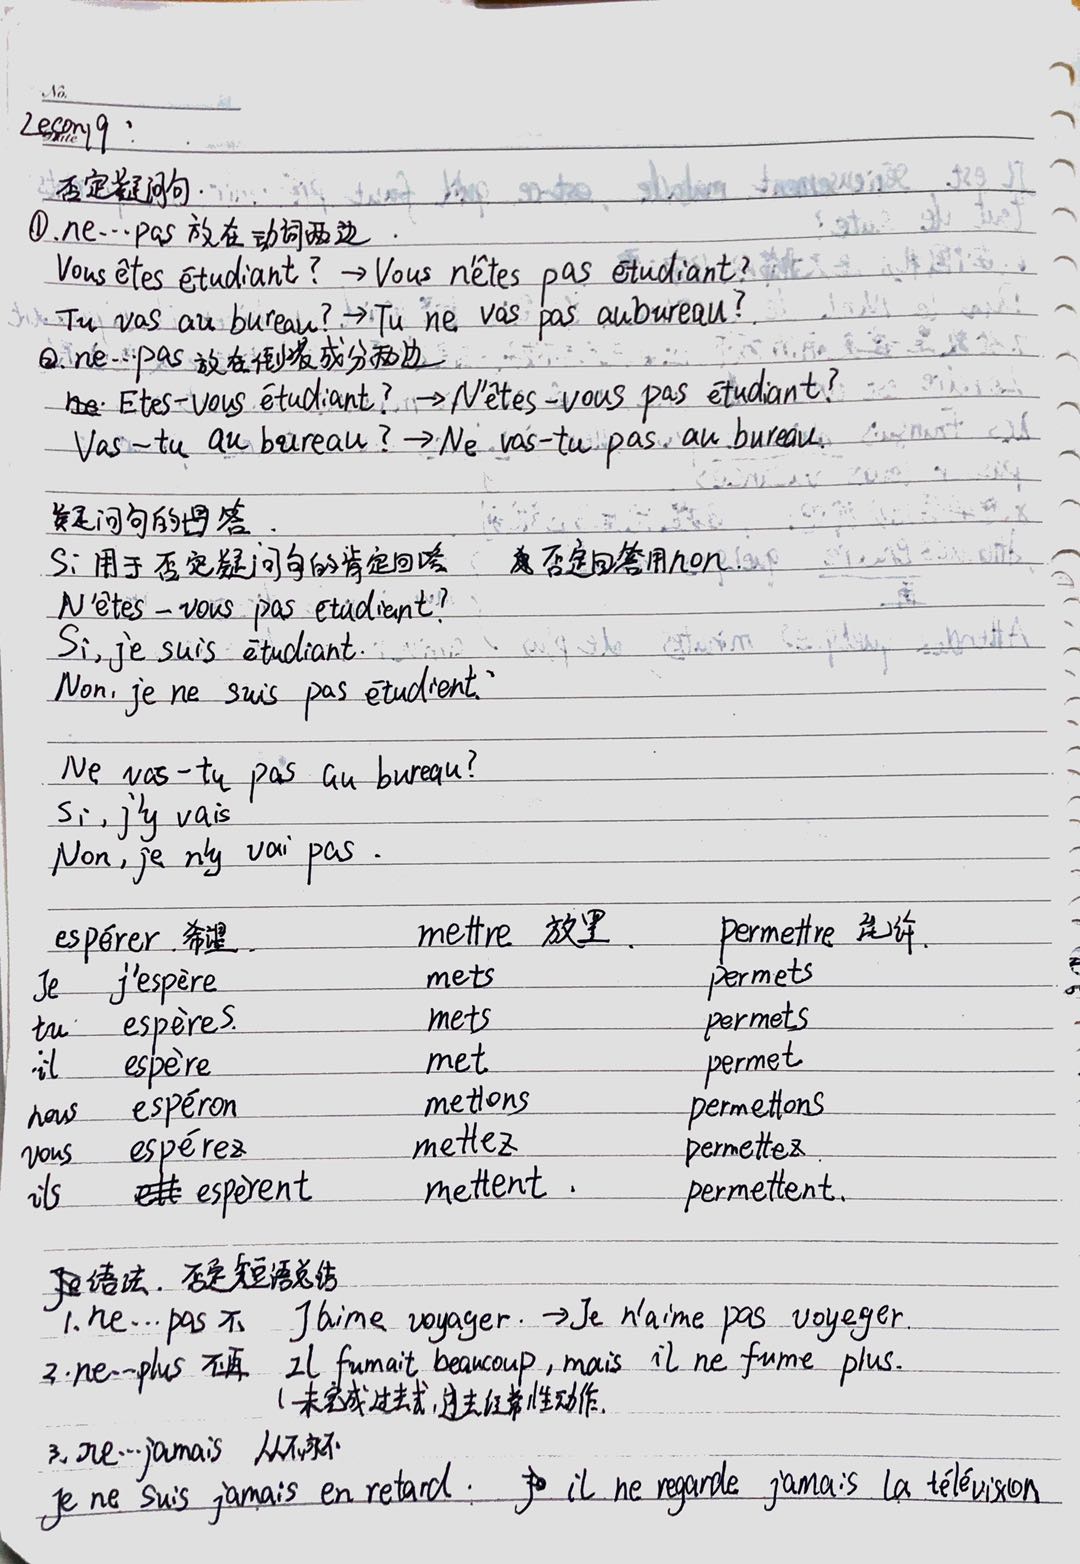 No.
Leçon 19 :
否定疑问句.
①. ne…pas 放在动词两边.
Vous êtes étudiant? → Vous n'êtes pas étudiant?
Tu vas au bureau? → Tu ne vas pas au bureau?
②. ne…pas 放在倒装成分两边
Etes-vous étudiant? → N'êtes-vous pas étudiant?
Vas-tu au bureau? → Ne vas-tu pas au bureau.
疑问句的回答.
Si 用于否定疑问句的肯定回答 否定回答用non.
N'êtes-vous pas etudient?
Si, je suis étudiant.
Non, je ne suis pas étudient.
Ne vas-tu pas au bureau?
Si, j'y vais
Non, je n'y vai pas.
espérer 希望. mettre 放置. permettre 允许.
Je j'espère mets permets
tu espères. mets permets
il espère met permet
nous espéron mettons permettons
vous espérez mettez permettez.
ils espèrent mettent. permettent.
语法. 否定短语总结
1. ne…pas 不 J'aime voyager. → Je n'aime pas voyeger.
2. ne…plus 不再 Il fumait beaucoup, mais il ne fume plus.
未完成过去式, 过去经常性动作.
3. ne…jamais 从不
je ne suis jamais en retard. il ne regarde jamais la télévision